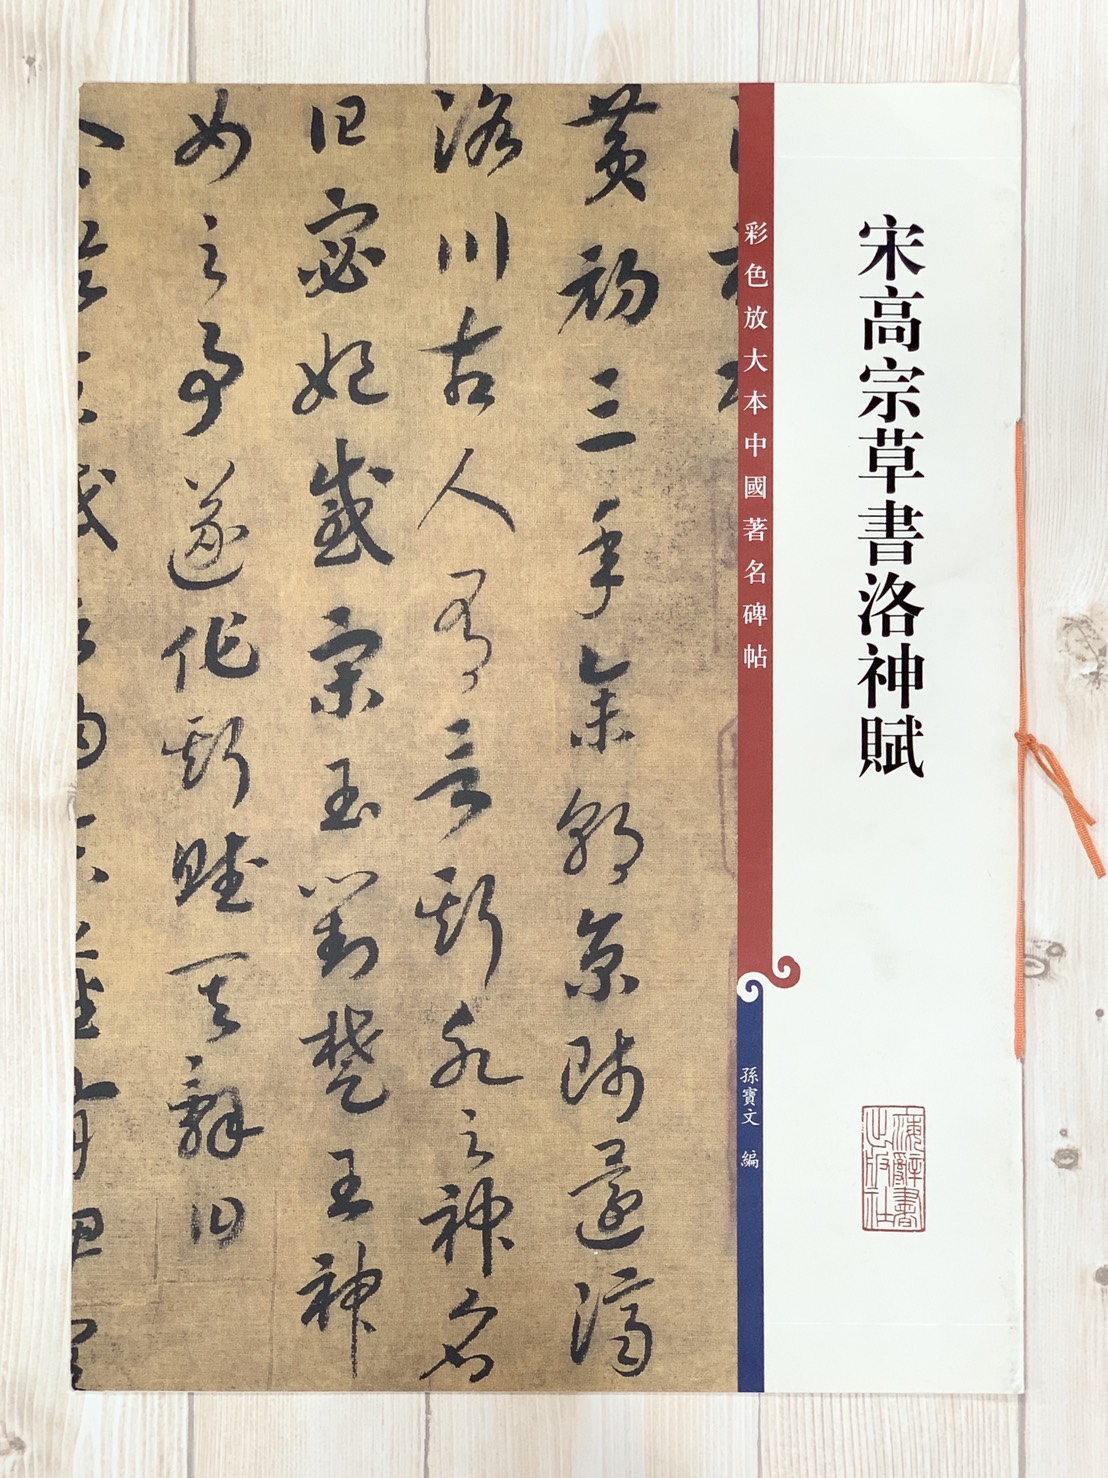 宋高宗草書洛神賦
上海辭書
出版社
彩色放大本中國著名碑帖
孫寶文 編
黃初三年余朝京師還濟
洛川古人有言斯水之神名
曰宓妃感宋玉對楚王神
女之事遂作斯賦其辭曰